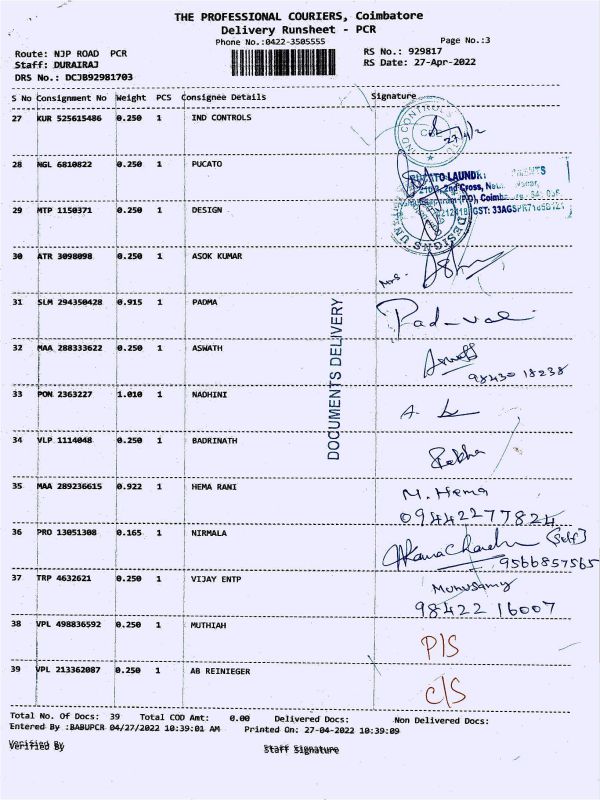 THE PROFESSIONAL COURIERS, Coimbatore
Delivery Runsheet - PCR
Phone No.:0422-3505555
Page No.:3
Route: NJP ROAD PCR
RS No.: 929817
Staff: DURAIRAJ
RS Date: 27-Apr-2022
DRS No.: DCJB92981703
S No Consignment No Weight PCS Consignee Details Signature
27 KUR 525615486 0.250 1 IND CONTROLS
28 NGL 6810822 0.250 1 PUCATO
29 MTP 1150371 0.250 1 DESIGN
30 ATR 3098098 0.250 1 ASOK KUMAR
31 SLM 294350428 0.915 1 PADMA
32 MAA 288333622 0.250 1 ASWATH
98430 18238
33 PON 2363227 1.010 1 NADHINI
34 VLP 1114048 0.250 1 BADRINATH
35 MAA 289236615 0.922 1 HEMA RANI M. Hema
09442277824
36 PRO 13051308 0.165 1 NIRMALA (Self)
9566857565
37 TRP 4632621 0.250 1 VIJAY ENTP Munusamy
98422 16007
38 VPL 498836592 0.250 1 MUTHIAH P/S
39 VPL 213362087 0.250 1 AB REINIEGER C/S
DOCUMENTS DELIVERY
Total No. Of Docs: 39 Total COD Amt: 0.00 Delivered Docs: Non Delivered Docs:
Entered By :BABUPCR 04/27/2022 10:39:01 AM Printed On: 27-04-2022 10:39:09
Verified By Staff Signature